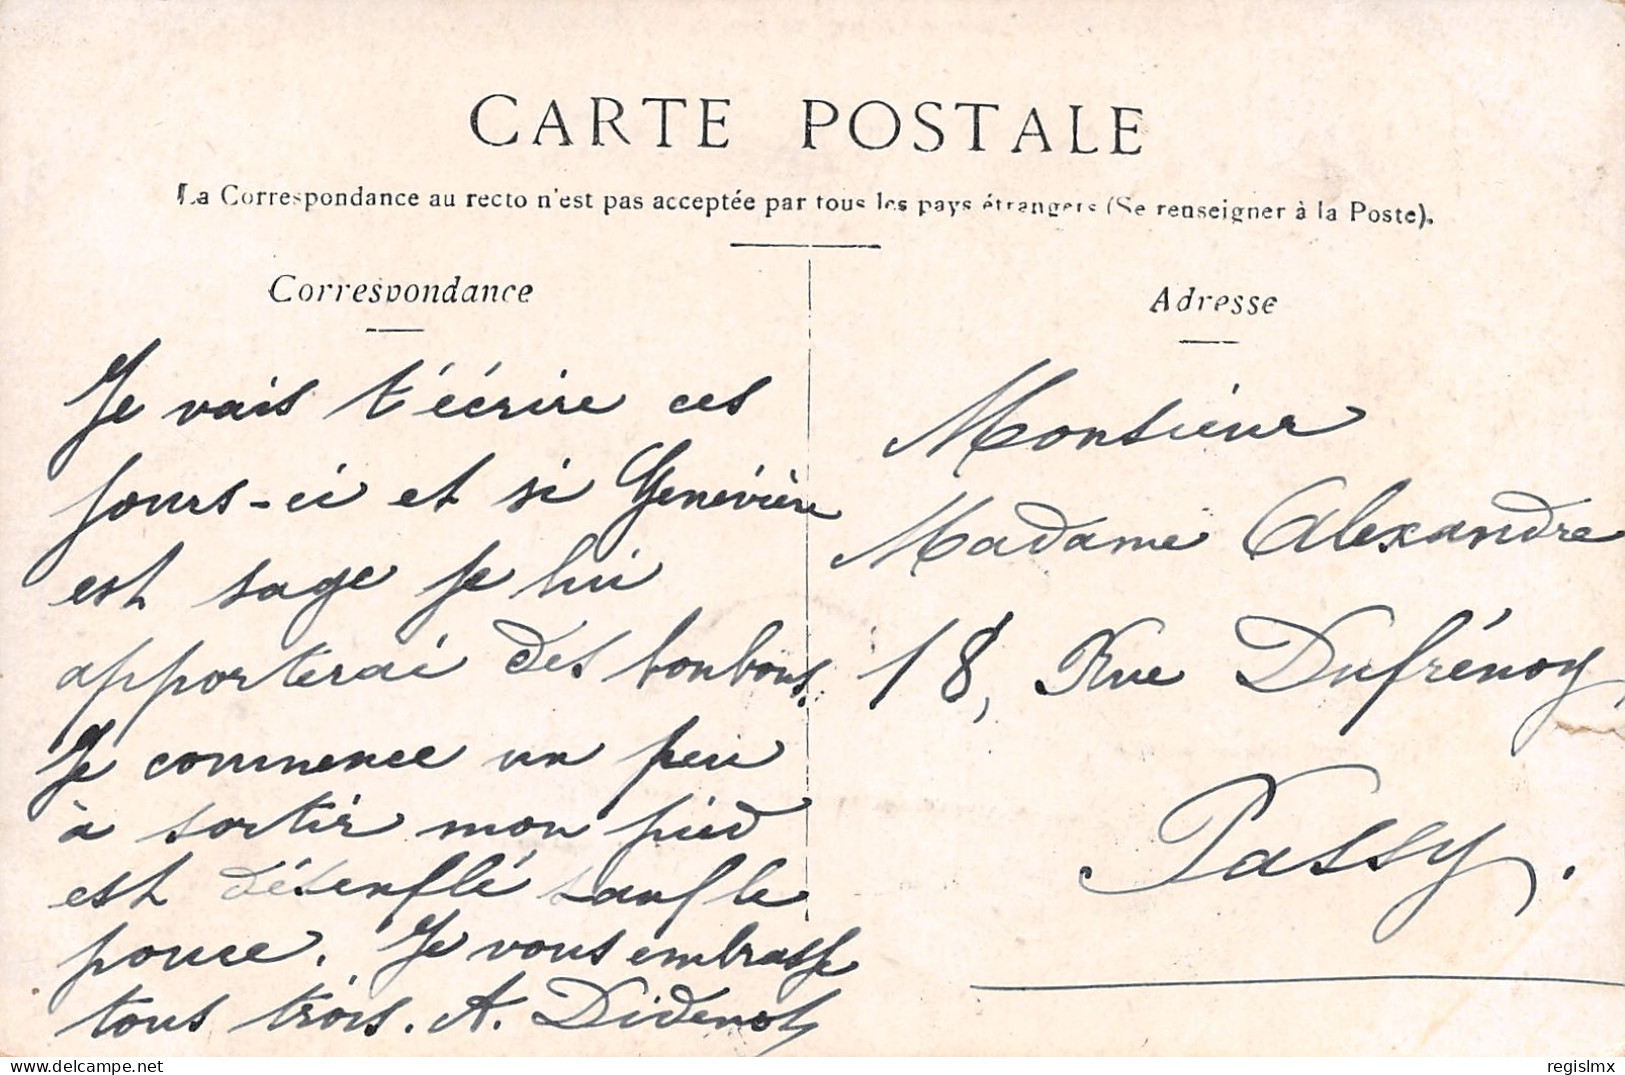 CARTE POSTALE
La Correspondance au recto n'est pas acceptée par tous les pays étrangers (Se renseigner à la Poste).
Correspondance
Je vais t'écrire ces
jours-ci et si Geneviève
est sage je lui
apporterai des bonbons.
Je commence un peu
à sortir mon pied
est désenflé sauf le
pouce. Je vous embrasse
tous trois. A. Didenot
Adresse
Monsieur
Madame Alexandre
18, Rue Dufrénoy,
Passy.
regislmx